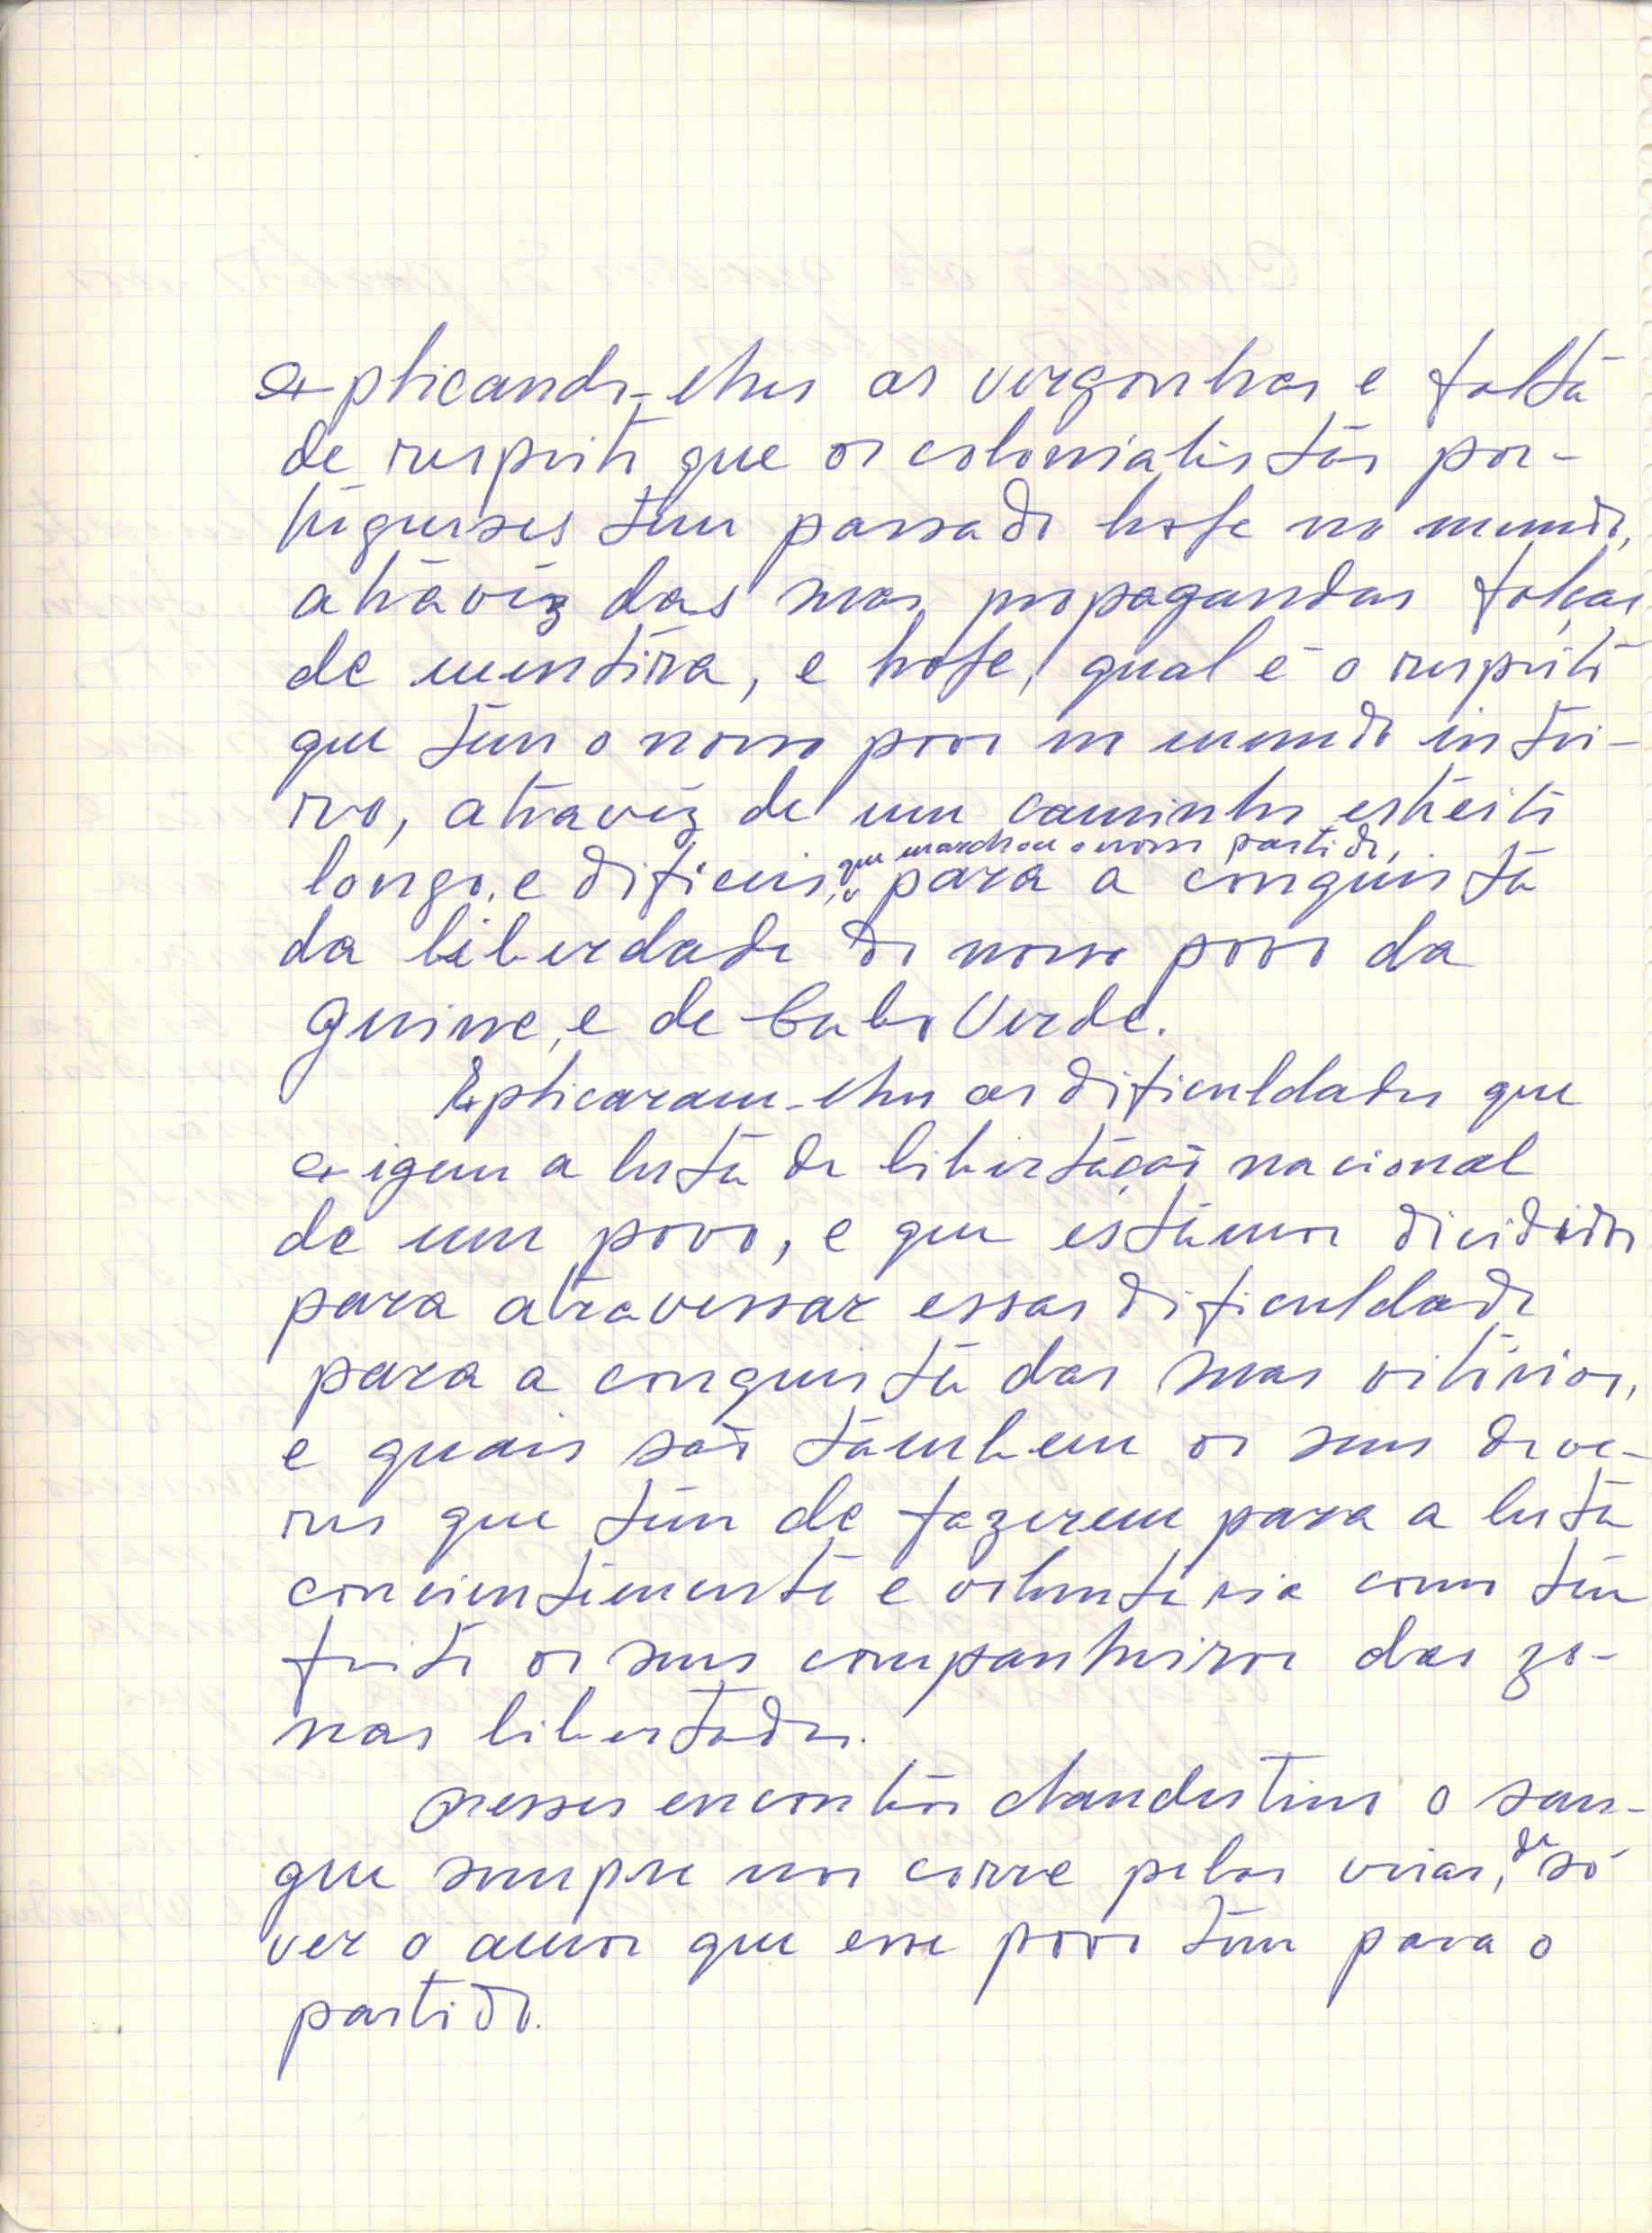 explicando-lhes as vergonhas e falta
de respeito que os colonialistas por-
tugueises tem passado hoje no mundo,
através das suas propagandas falças
de mentira, e hoje, qual é o respeito
que tem o nosso povo no mundo intei-
ro, atravéz de um caminho estreito
longo, e dificeis, que marchou o nosso partido, para a conquista
da liberdade do nosso povo da
Guine, e de Cabo Verde.
Explicaram-lhes as dificuldades que
exigem a luta de libertação nacional
de um povo, e que estamos dicididos
para atravessar essas dificuldade
para a conquista das suas vitórias,
e quais são tambem os seus deve-
res que têm de fazerem para a luta
concientemente e voluntária como tem
feito os seus companheiros das zo-
nas libertadas.
Nesses encontros clandestinos o san-
gue sempre nos corre pelas veias, de só
ver o amor que esse povo tem para o
partido.